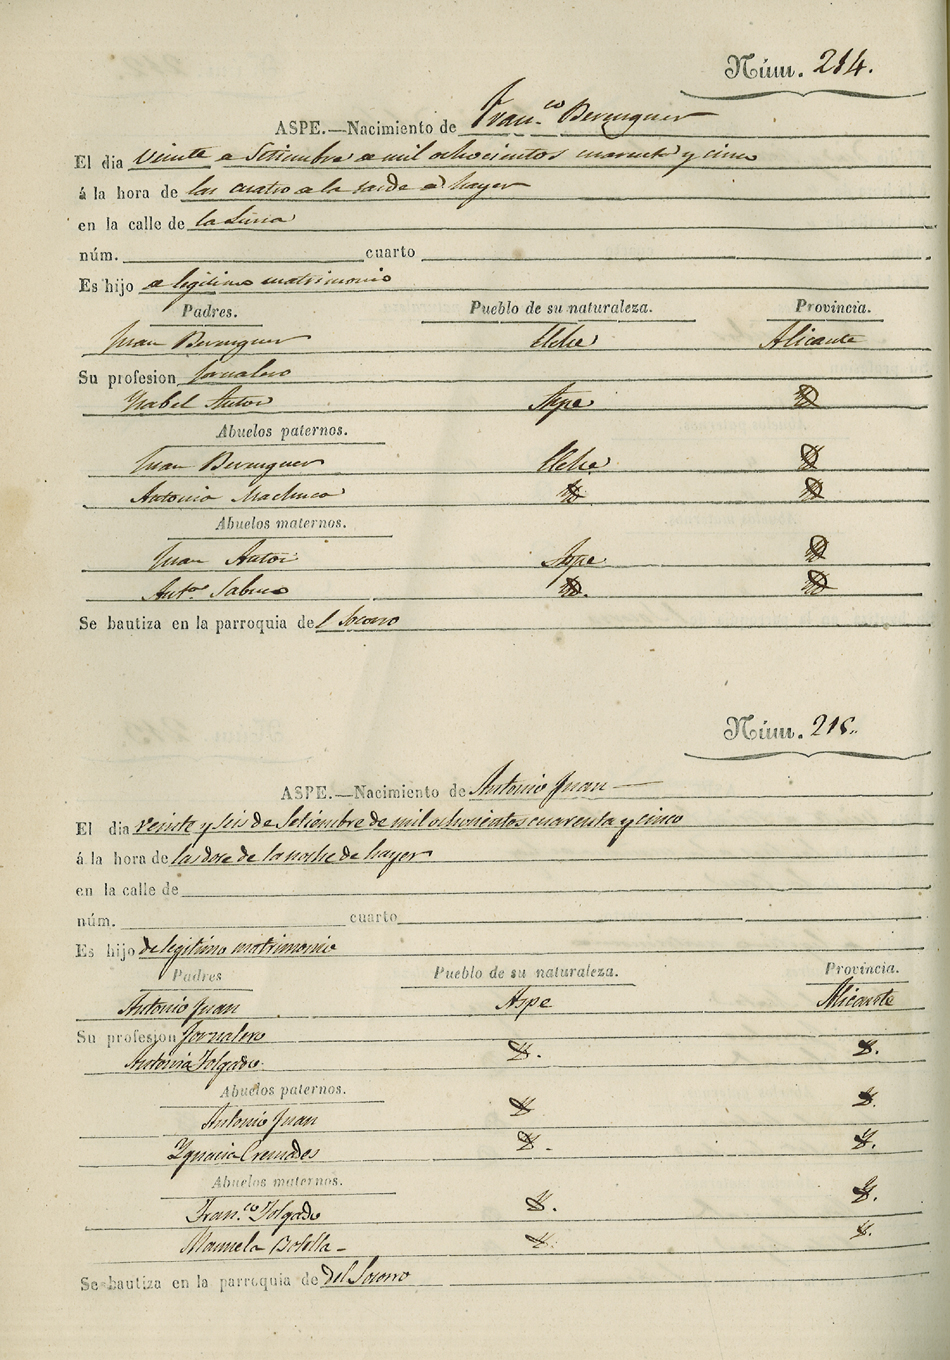 Núm. 214.
ASPE.—Nacimiento de Fran.co Berenguer
El dia Veinte de Setiembre de mil ochocientos cuarenta y cinco
á la hora de las cuatro de la tarde de hayer
en la calle de la Luna
núm. cuarto
Es hijo de legitimo matrimonio
Padres. Pueblo de su naturaleza. Provincia.
Juan Berenguer Elche Alicante
Su profesion Jornalero
Ysabel Autor Aspe
Abuelos paternos.
Juan Berenguer Elche
Antonia Machuca
Abuelos maternos.
Juan Autor Aspe
Ant.a Sabuco
Se bautiza en la parroquia del Socorro
Núm. 215.
ASPE.—Nacimiento de Antonio Juan
El dia veinte y seis de Setiembre de mil ochocientos cuarenta y cinco
á la hora de las doce de la noche de hayer
en la calle de
núm. cuarto
Es hijo de legitimo matrimonio
Padres Pueblo de su naturaleza. Provincia.
Antonio Juan Aspe Alicante
Su profesion Jornalero
Antonia Folgado.
Abuelos paternos.
Antonio Juan
Ygnacia Cremades
Abuelos maternos.
Fran.co Folgado
Manuela Botella
Se bautiza en la parroquia de del Socorro